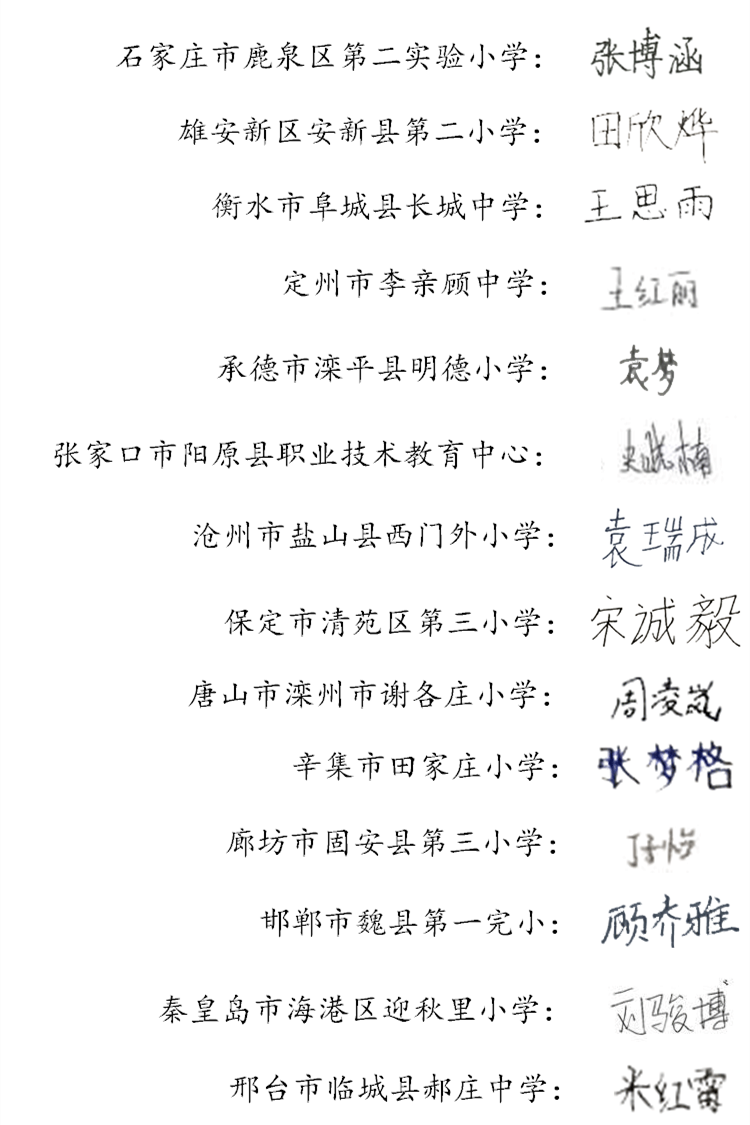 石家庄市鹿泉区第二实验小学：张博涵
雄安新区安新县第二小学：田欣烨
衡水市阜城县长城中学：王思雨
定州市李亲顾中学：王红丽
承德市滦平县明德小学：袁梦
张家口市阳原县职业技术教育中心：史晓楠
沧州市盐山县西门外小学：袁瑞成
保定市清苑区第三小学：宋诚毅
唐山市滦州市谢各庄小学：周凌岚
辛集市田家庄小学：张梦格
廊坊市固安县第三小学：
邯郸市魏县第一完小：顾乔雅
秦皇岛市海港区迎秋里小学：刘骏博
邢台市临城县郝庄中学：米红雷